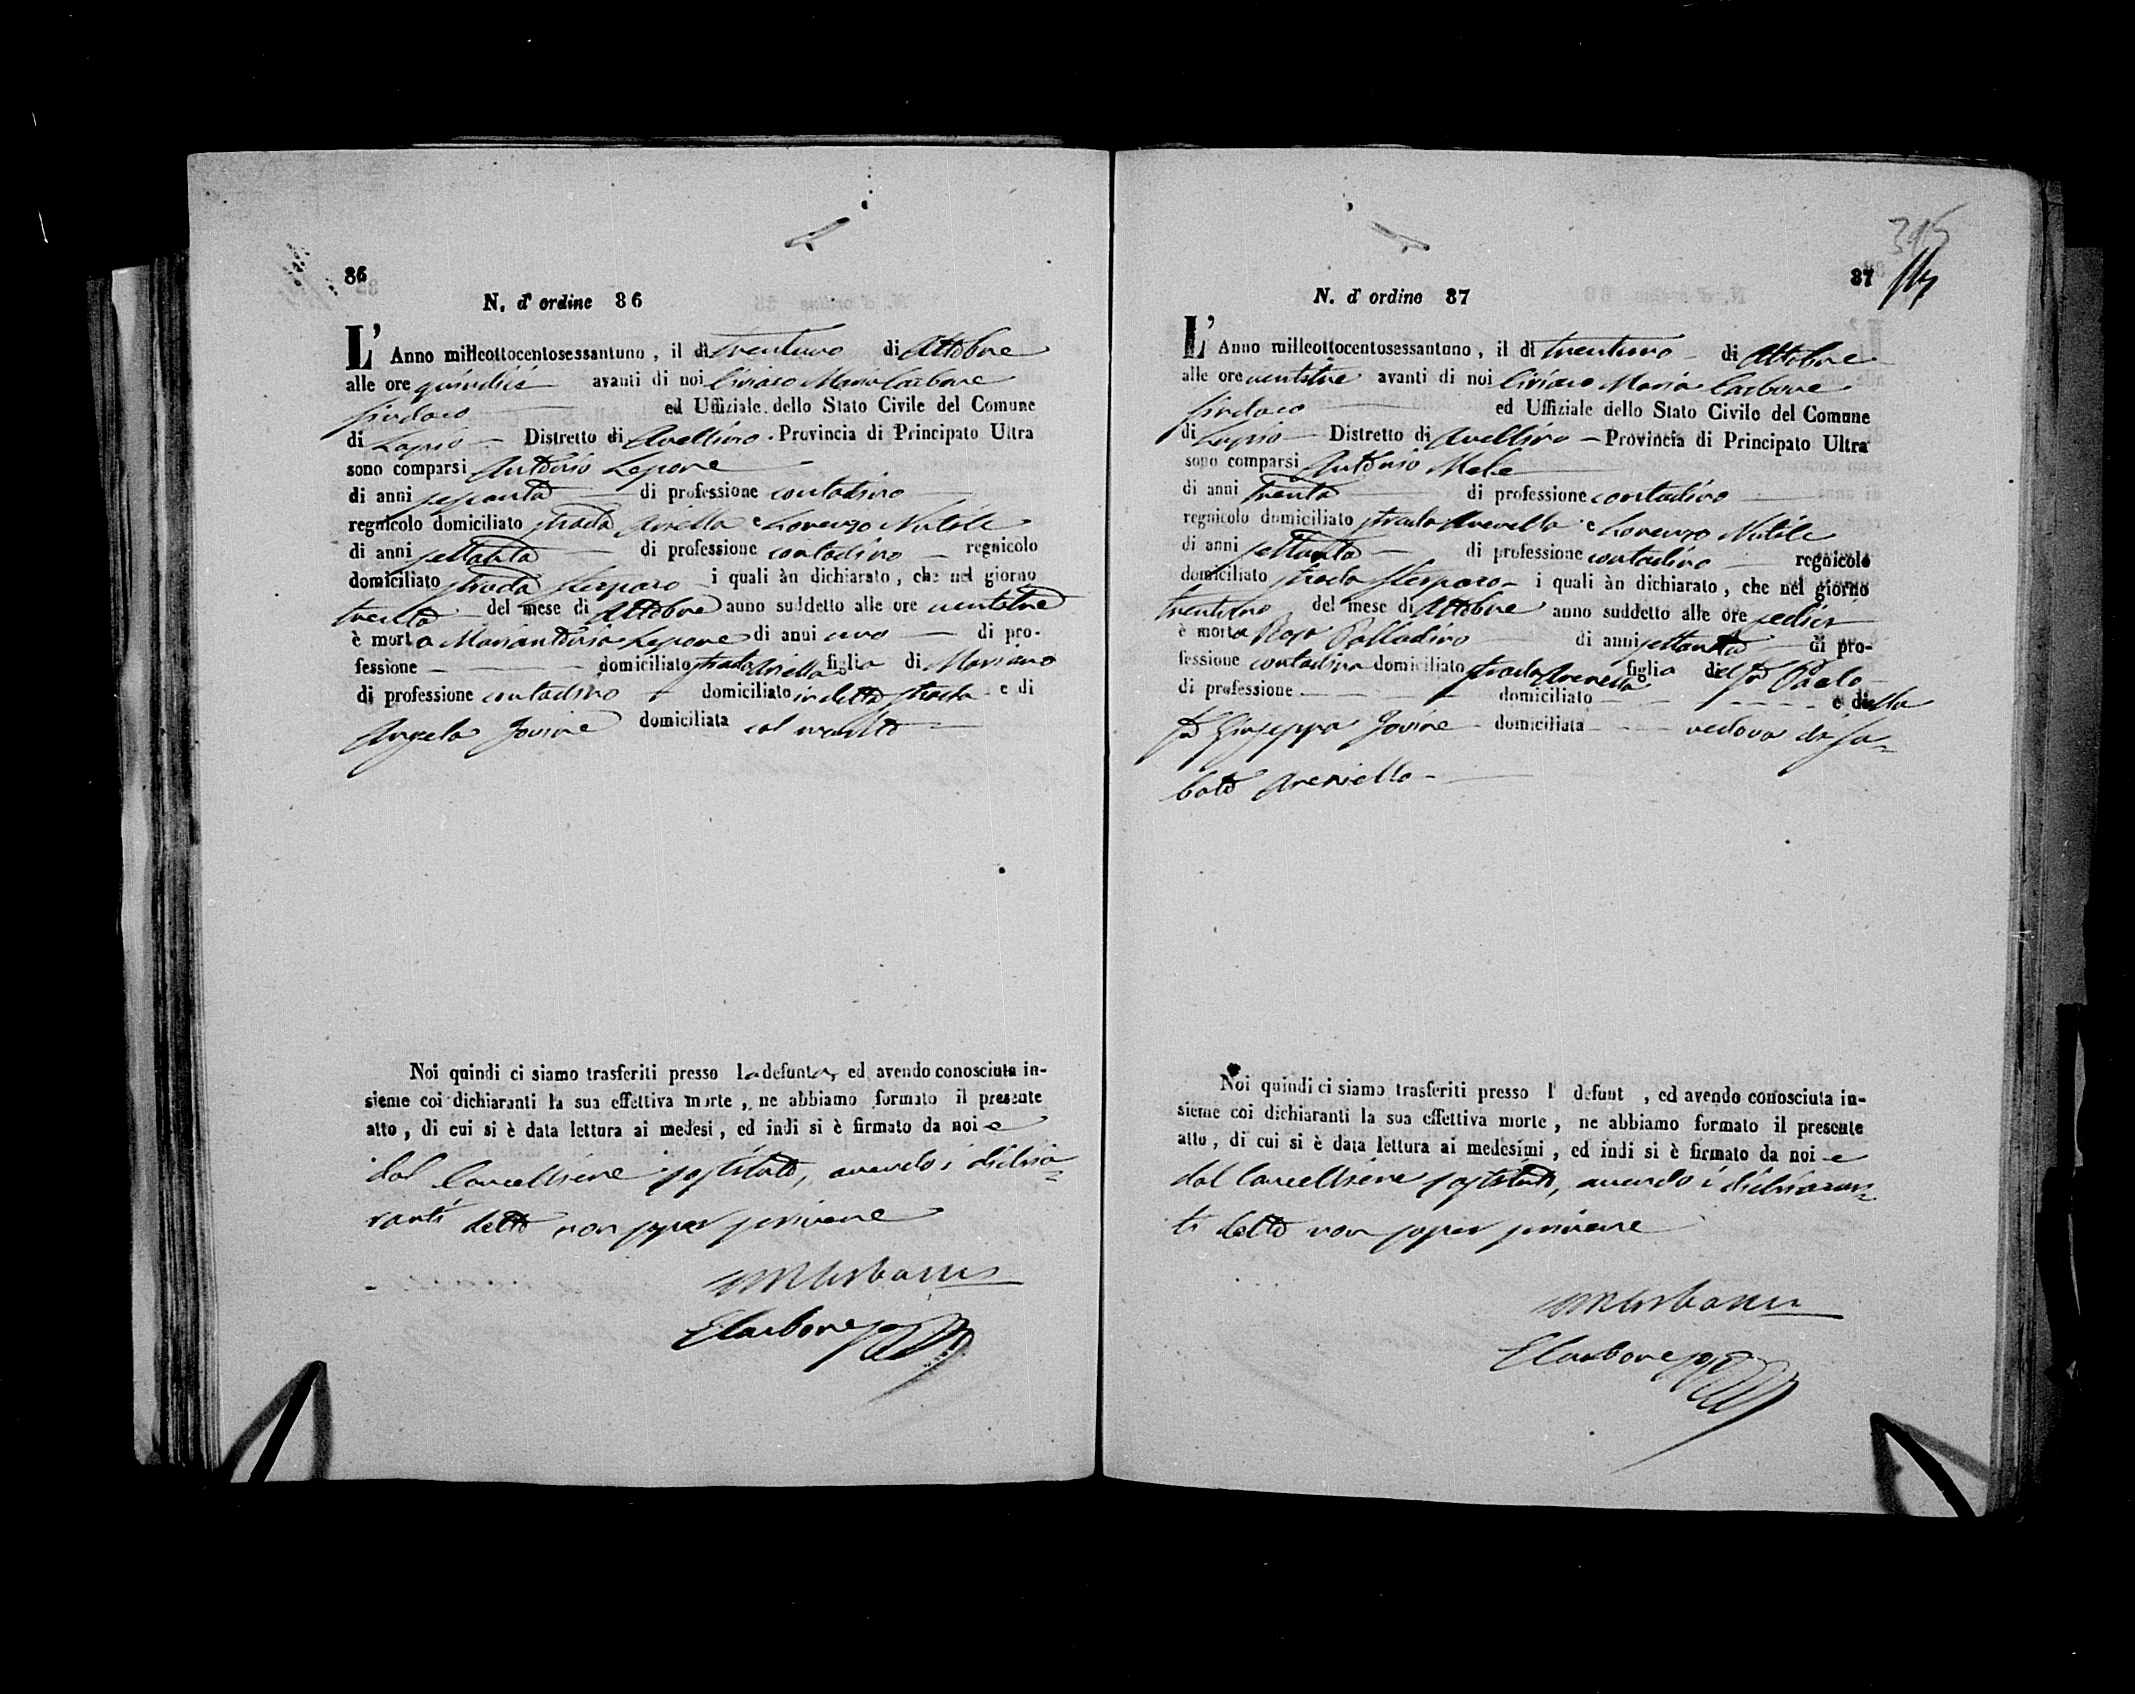 86
N. d'ordine 86
L'Anno milleottocentosessantuno, il dì trentuno di Ottobre
alle ore quindici avanti di noi Ciriaco Maria Carbone
Sindaco ed Uffiziale dello Stato Civile del Comune
di Lapio Distretto di Avellino Provincia di Principato Ultra
sono comparsi Antonio Lepore
di anni sessanta di professione contadino
regnicolo domiciliato strada Arella e Lorenzo Nutile
di anni settanta di professione contadino regnicolo
domiciliato strada i quali àn dichiarato, che nel giorno
trenta del mese di Ottobre anno suddetto alle ore ventitre
è morta Mariantonia Lepore di anni uno di pro-
fessione domiciliato strada Arella figlia di Mariano
di professione contadino domiciliato in detta strada e di
Angela Jovine domiciliata col marito
Noi quindi ci siamo trasferiti presso la defunta, ed avendo conosciuta in-
sieme coi dichiaranti la sua effettiva morte, ne abbiamo formato il presente
atto, di cui si è data lettura ai medesi, ed indi si è firmato da noi e
dal Cancelliere sostituto, avendo i dichia=
ranti detto non saper scrivere
CMCarbone
ECarbone
315
87
N. d'ordine 87
L'Anno milleottocentosessantuno, il dì trentuno di Ottobre
alle ore ventitre avanti di noi Ciriaco Maria Carbone
Sindaco ed Uffiziale dello Stato Civile del Comune
di Lapio Distretto di Avellino Provincia di Principato Ultra
sono comparsi Antonio Mele
di anni trenta di professione contadino
regnicolo domiciliato strada Arenella e Lorenzo Nutile
di anni settanta di professione contadino regnicolo
domiciliato strada i quali àn dichiarato, che nel giorno
trentuno del mese di Ottobre anno suddetto alle ore sedici
è morta Rosa Palladino di anni settanta di pro-
fessione contadina domiciliato strada Arenella figlia del fu Paolo
di professione domiciliato e della
fu Giuseppa Jovine domiciliata vedova di Sa=
bato Areniello
Noi quindi ci siamo trasferiti presso l defunt , ed avendo conosciuta in-
sieme coi dichiaranti la sua effettiva morte, ne abbiamo formato il presente
atto, di cui si è data lettura ai medesimi, ed indi si è firmato da noi e
dal Cancelliere sostituto, avendo i dichiaran=
ti detto non saper scrivere
CMCarbone
ECarbone